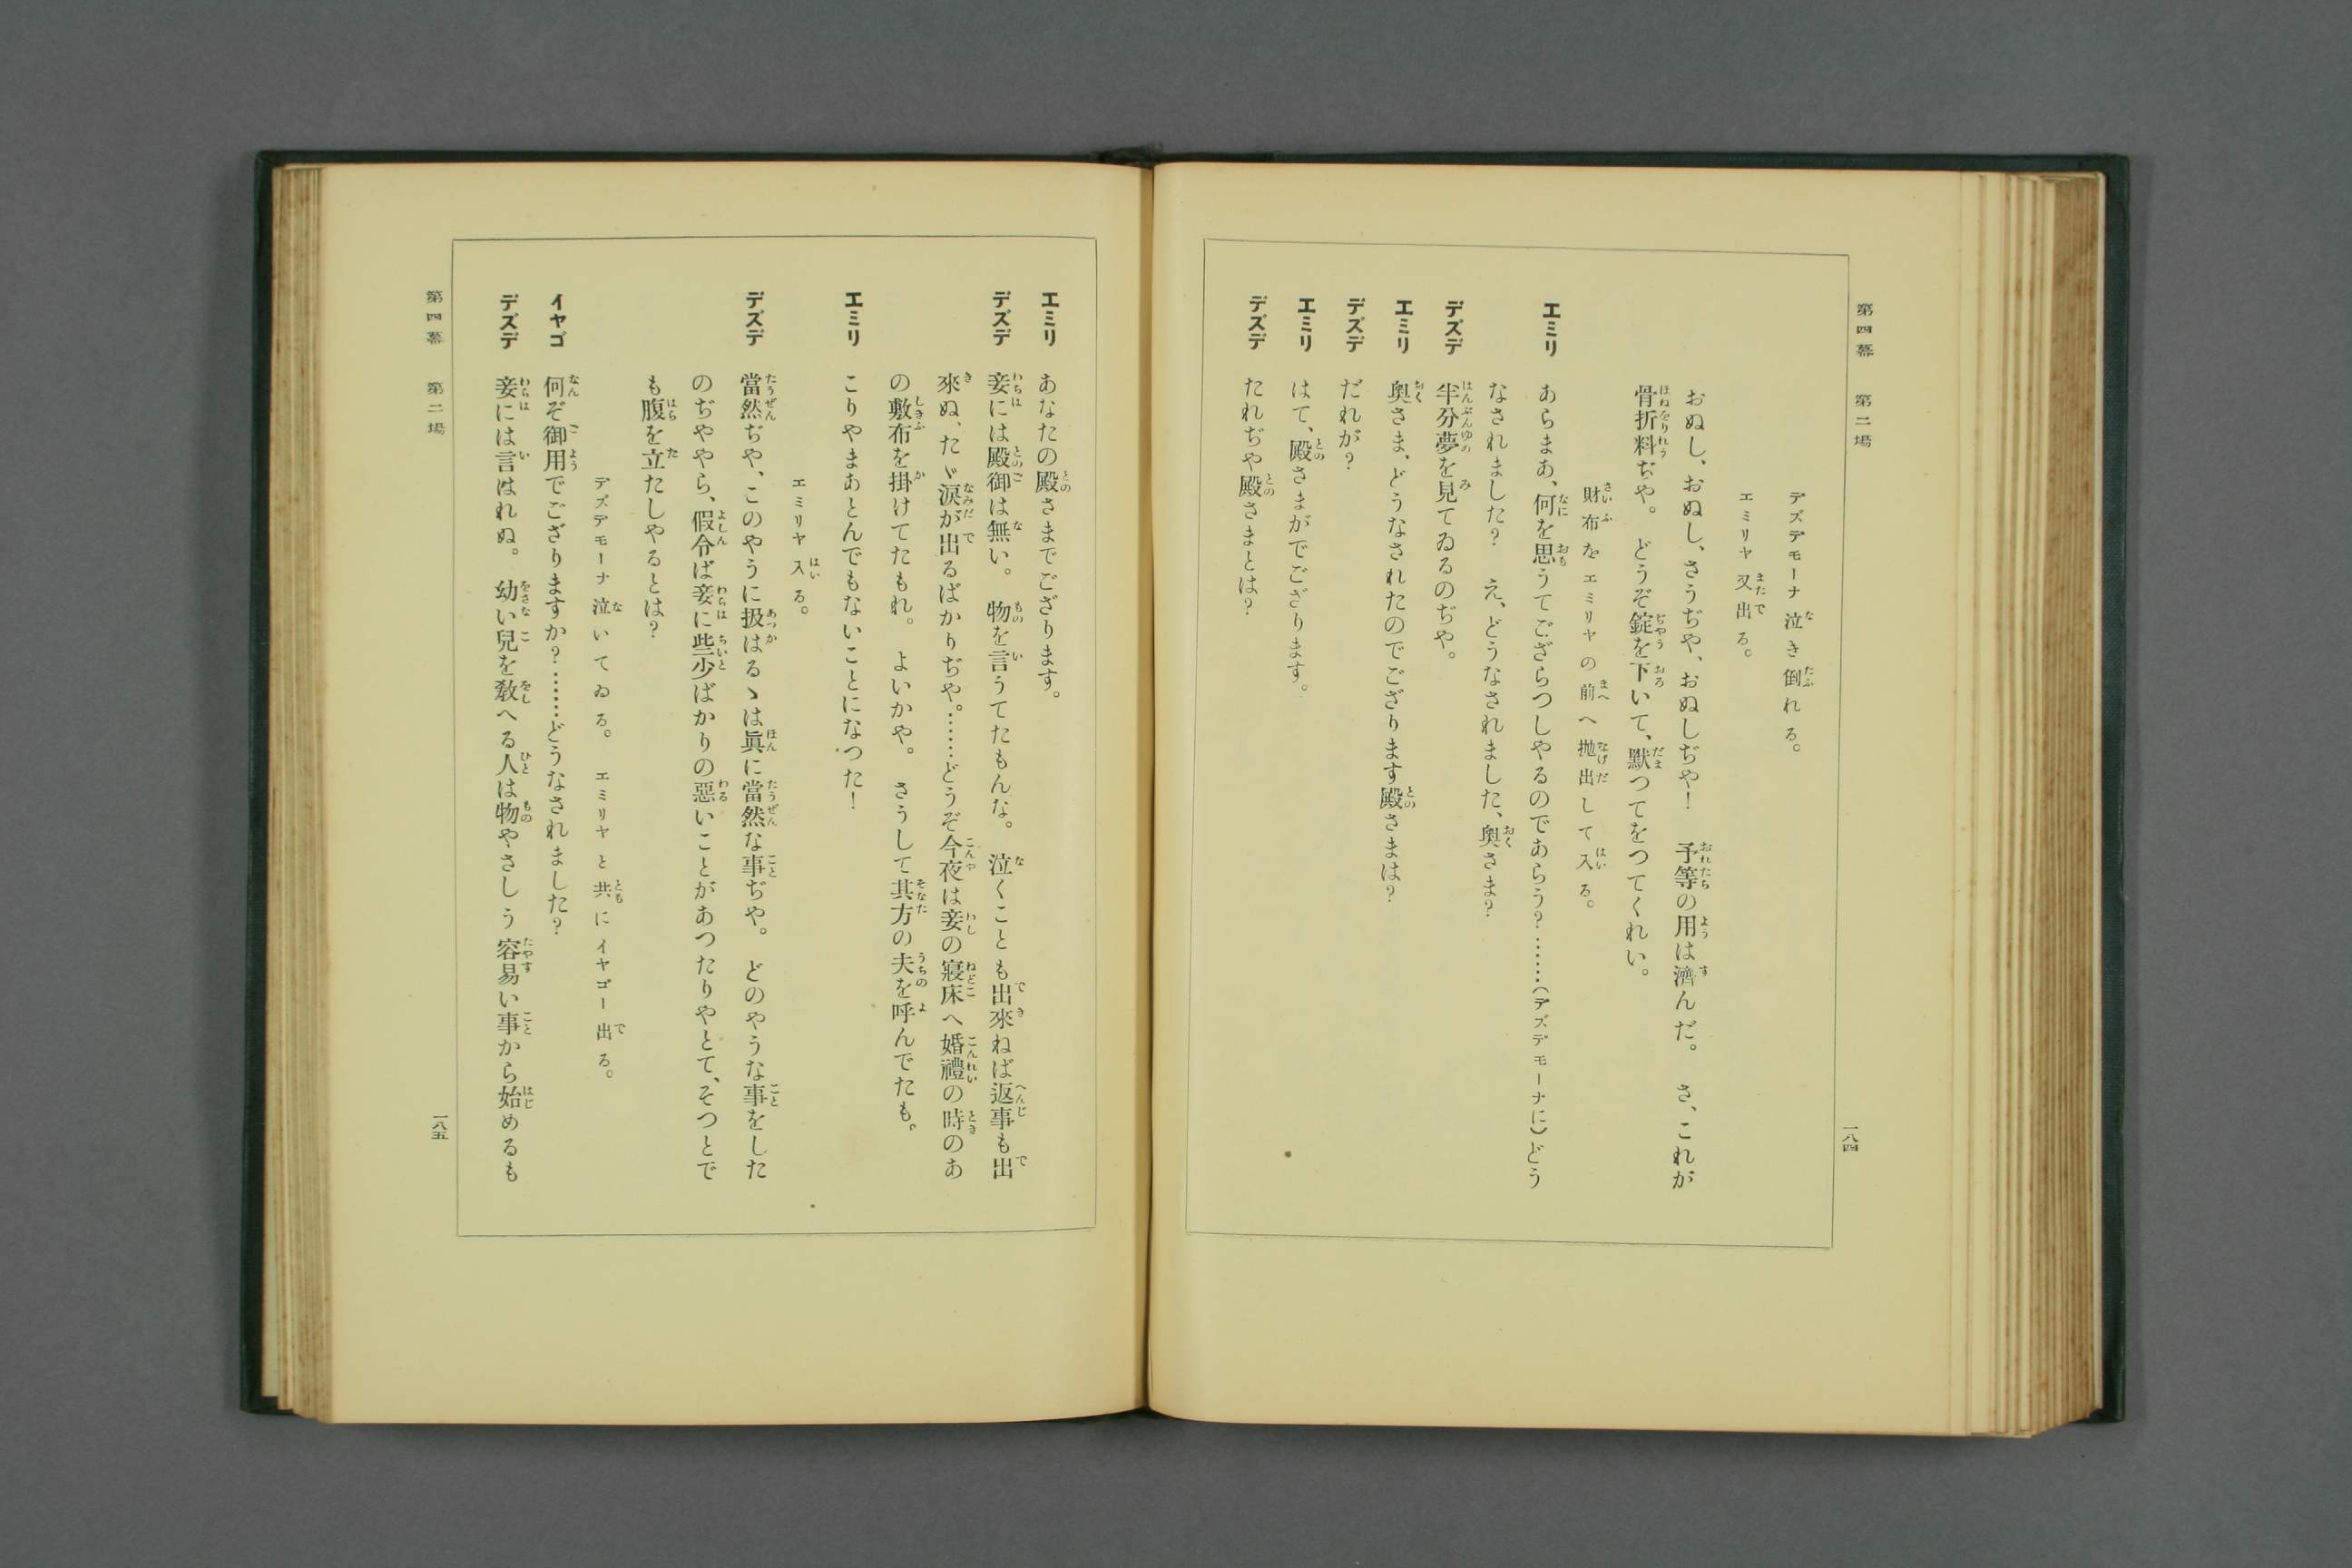 第四幕　第二場
デズデモーナ泣き倒れる。
エミリヤ又出る。
おぬし、おぬし、さうぢや、おぬしぢや！　予等の用は濟んだ。　さ、これが
骨折料ぢや。　どうぞ錠を下いて、默つてをつてくれい。
財布をエミリヤの前へ抛出して入る。
エミリ　あらまあ、何を思うてござらつしやるのであらう？……（デズデモーナに）どう
なされました？　え、どうなされました、奧さま？
デズデ　半分夢を見てゐるのぢや。
エミリ　奧さま、どうなされたのでござります殿さまは？
デズデ　だれが？
エミリ　はて、殿さまがでござります。
デズデ　たれぢや殿さまとは？
一八四
エミリ　あなたの殿さまでござります。
デズデ　妾には殿御は無い。　物を言うてたもんな。　泣くことも出來ねば返事も出
來ぬ、たゞ涙が出るばかりぢや。……どうぞ今夜は妾の寢床へ婚禮の時のあ
の敷布を掛けてたもれ。　よいかや。　さうして其方の夫を呼んでたも。
エミリ　こりやまあとんでもないことになつた！
エミリヤ入る。
デズデ　當然ぢや、このやうに扱はるゝは眞に當然な事ぢや。　どのやうな事をした
のぢややら、假令ば妾に些少ばかりの惡いことがあつたりやとて、そつとで
も腹を立たしやるとは？
デズデモーナ泣いてゐる。　エミリヤと共にイヤゴー出る。
イヤゴ　何ぞ御用でござりますか？……どうなされました？
デズデ　妾には言はれぬ。　幼い兒を敎へる人は物やさしう容易い事から始めるも
第四幕　第二場
一八五